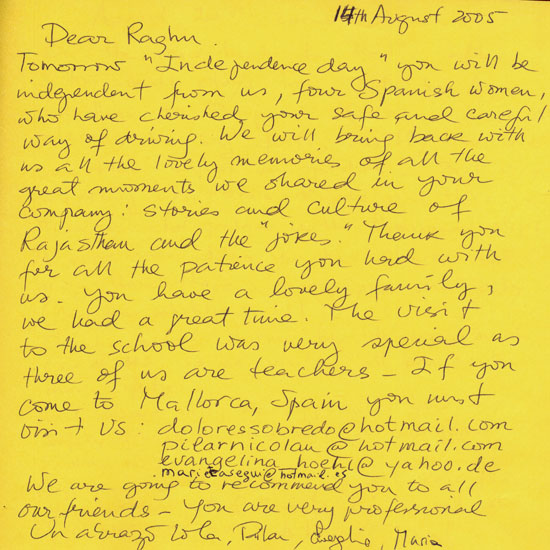 14th August 2005
Dear Raghu.
Tomorrow "Independence day" you will be
independent from us, four Spanish women,
who have cherished your safe and careful
way of driving. We will bring back with
us all the lovely memories of all the
great moments we shared in your
company: stories and culture of
Rajasthan and the "jokes." Thank you
for all the patience you had with
us. You have a lovely family,
we had a great time. The visit
to the school was very special as
three of us are teachers - If you
come to Mallorca, Spain you must
visit us: doloressobredo@hotmail.com
pilarnicolau@hotmail.com
evangelina_hoehl@yahoo.de
@hotmail.es
We are going to recommend you to all
our friends - You are very professional
Un abrazo Lola, Pilar, Maria